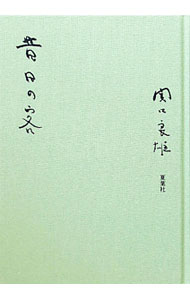 昔日の客
関口良雄
夏葉社